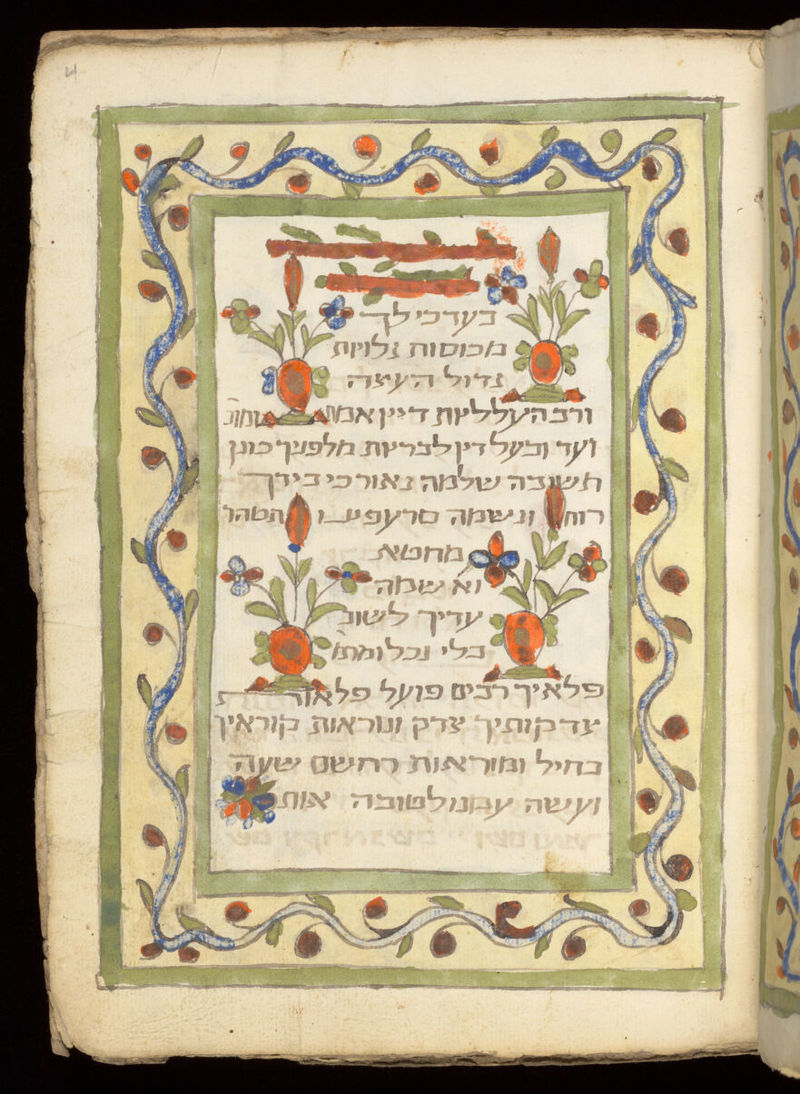 בערכי לך
מכוסות גלויות
גדול העצה
ורב העלליות דיין אמת
ועד ובעל דין לבריות מלפניך כונן
תשובה שלמה נאור כי בידך
רוח ונשמה סרעפינו תטהר
מחטא
ואשמה
עדיך לשוב
בלי נכלומה
פלאיך רבים פועל פלאות
צדקותיך צדק ונוראות קוראיך
בחיל ומוראות רחשם שעה
ועשה עמנו לטובה אות